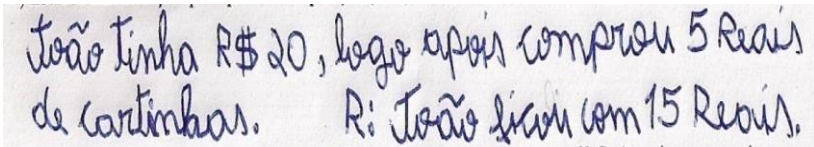 João tinha R$ 20, logo após comprou 5 Reais
de cartinhas. R: João ficou com 15 Reais.